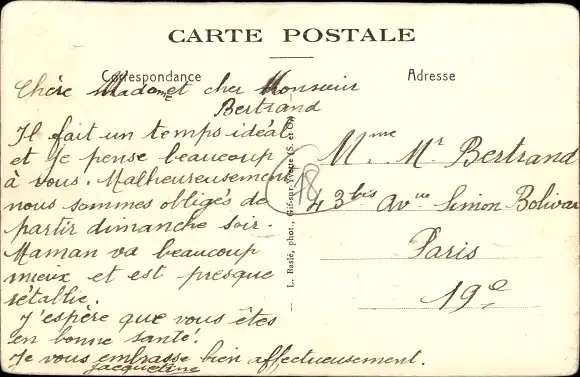 CARTE POSTALE
Correspondance
Chère Madame et cher Monsieur
Bertrand
Il fait un temps idéal
et je pense beaucoup
à vous. Malheureusement
nous sommes obligés de
partir dimanche soir.
Maman va beaucoup
mieux et est presque
rétablie.
J'espère que vous êtes
en bonne santé.
Je vous embrasse bien affectueusement.
Jacqueline
L. Baslé, phot., Gif-sur-Yvette (S. et O.)
18
Adresse
Mme. Mr Bertrand
43bis Avue Simon Bolivar
Paris
19e